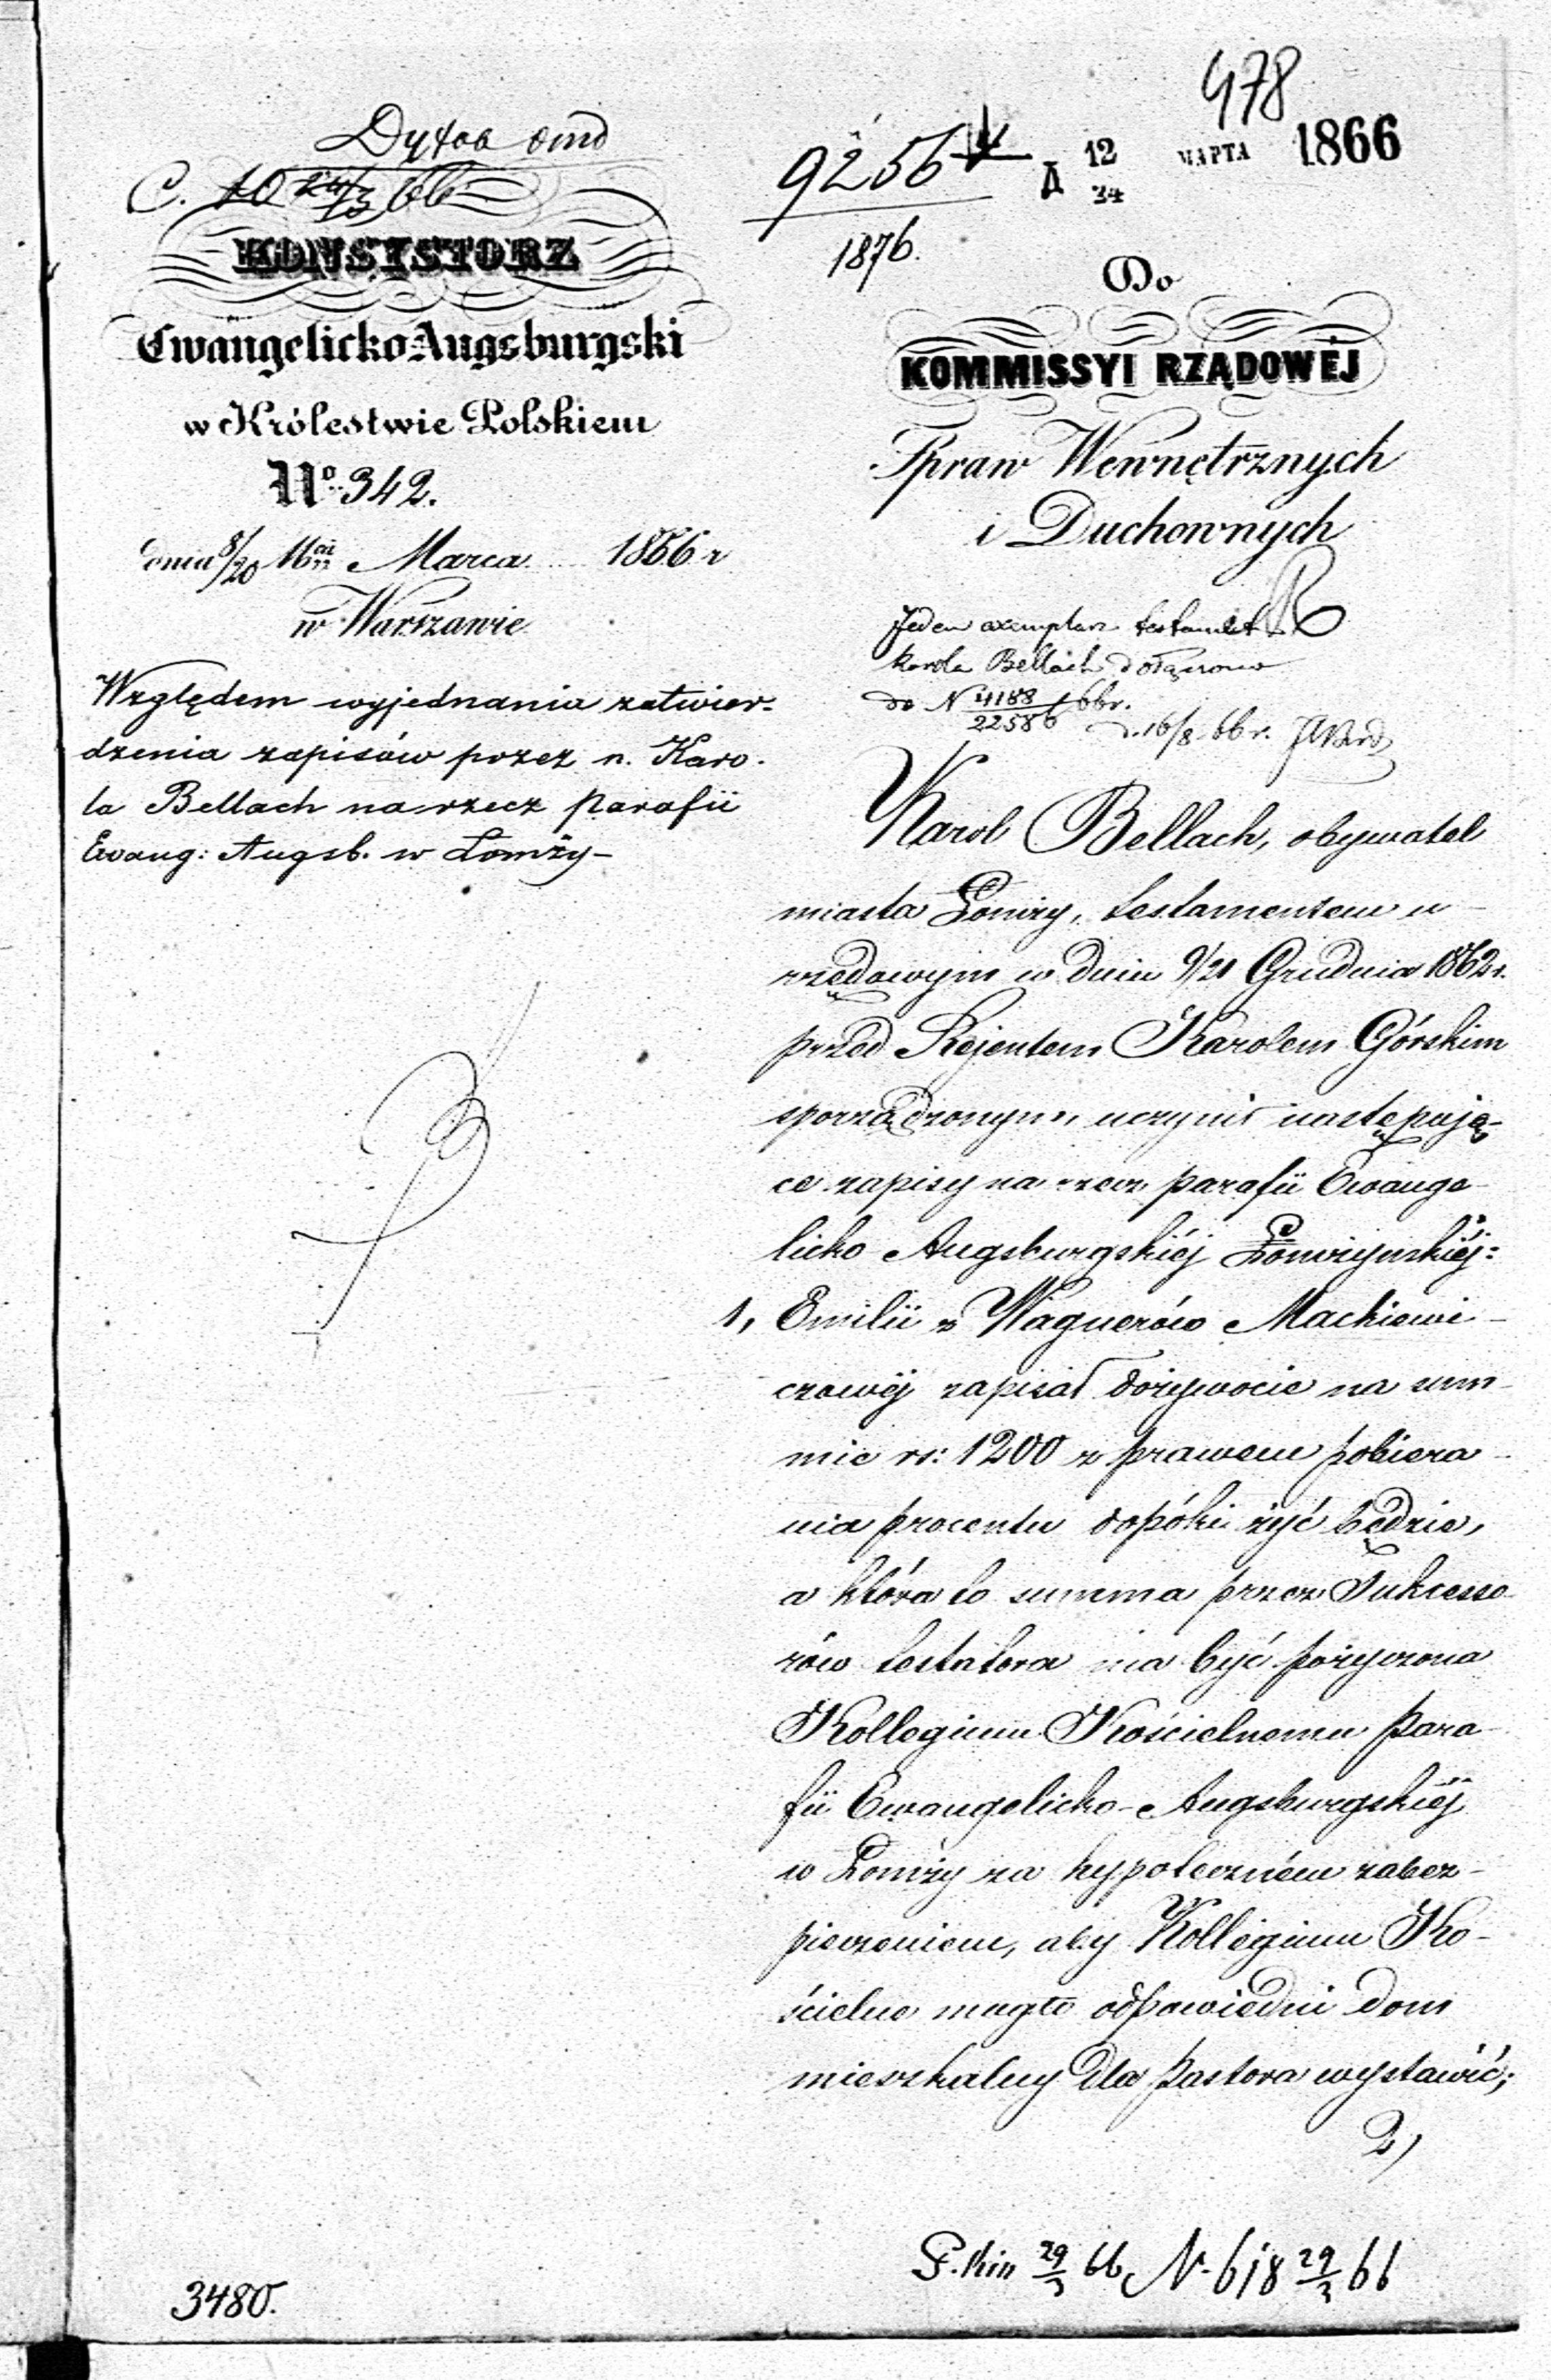 478
9256
1876.
12
24
МАРТА 1866
C.
KONSYSTORZ
Ewangelicko Augsburgski
w Królestwie Polskiem
Nº 342.
dnia 8/20 Mca Marca 1866 r
w Warszawie
Względem wyjednania zatwier-
dzenia zapisów przez n. Karo-
la Bellach na rzecz parafii
Ewang: Augsb. w Łomży-
3480.
Do
KOMMISSYI RZĄDOWÉJ
Spraw Wewnętrznych
i Duchownych
Jeden exemplarz testament
Karola Bellach dołączono
do N 4188/22586 66r.
d. 16/8 66 r.
Karol Bellach, obywatel
miasta Łomży, testamentem u-
rzędowym w dniu 9/21 Grudnia 1862 r.
przed Rejentem Karolem Górskim
sporządzonym, uczynił następują-
ce zapisy na rzecz parafii Ewange-
licko Augsburgskiéj Łomżyńskiéj:
1, Emilii z Wagnerów Mackiewi-
czowéj zapisał dożywocie na sum-
mie rs: 1200 z prawem pobiera-
nia procentu dopóki żyć będzie,
a która to summa przez Sukcesso-
rów testatora ma być pożyczona
Kollegium Kościelnemu para-
fii Ewangelicko-Augsburgskiéj
w Łomży za hypoteczném zabez-
pieczeniem, aby Kollegium Ko-
ścielne mogło odpowiedni dom
mieszkalny dla pastora wystawić;
2)
29/3 66 N. 618 29/3 66